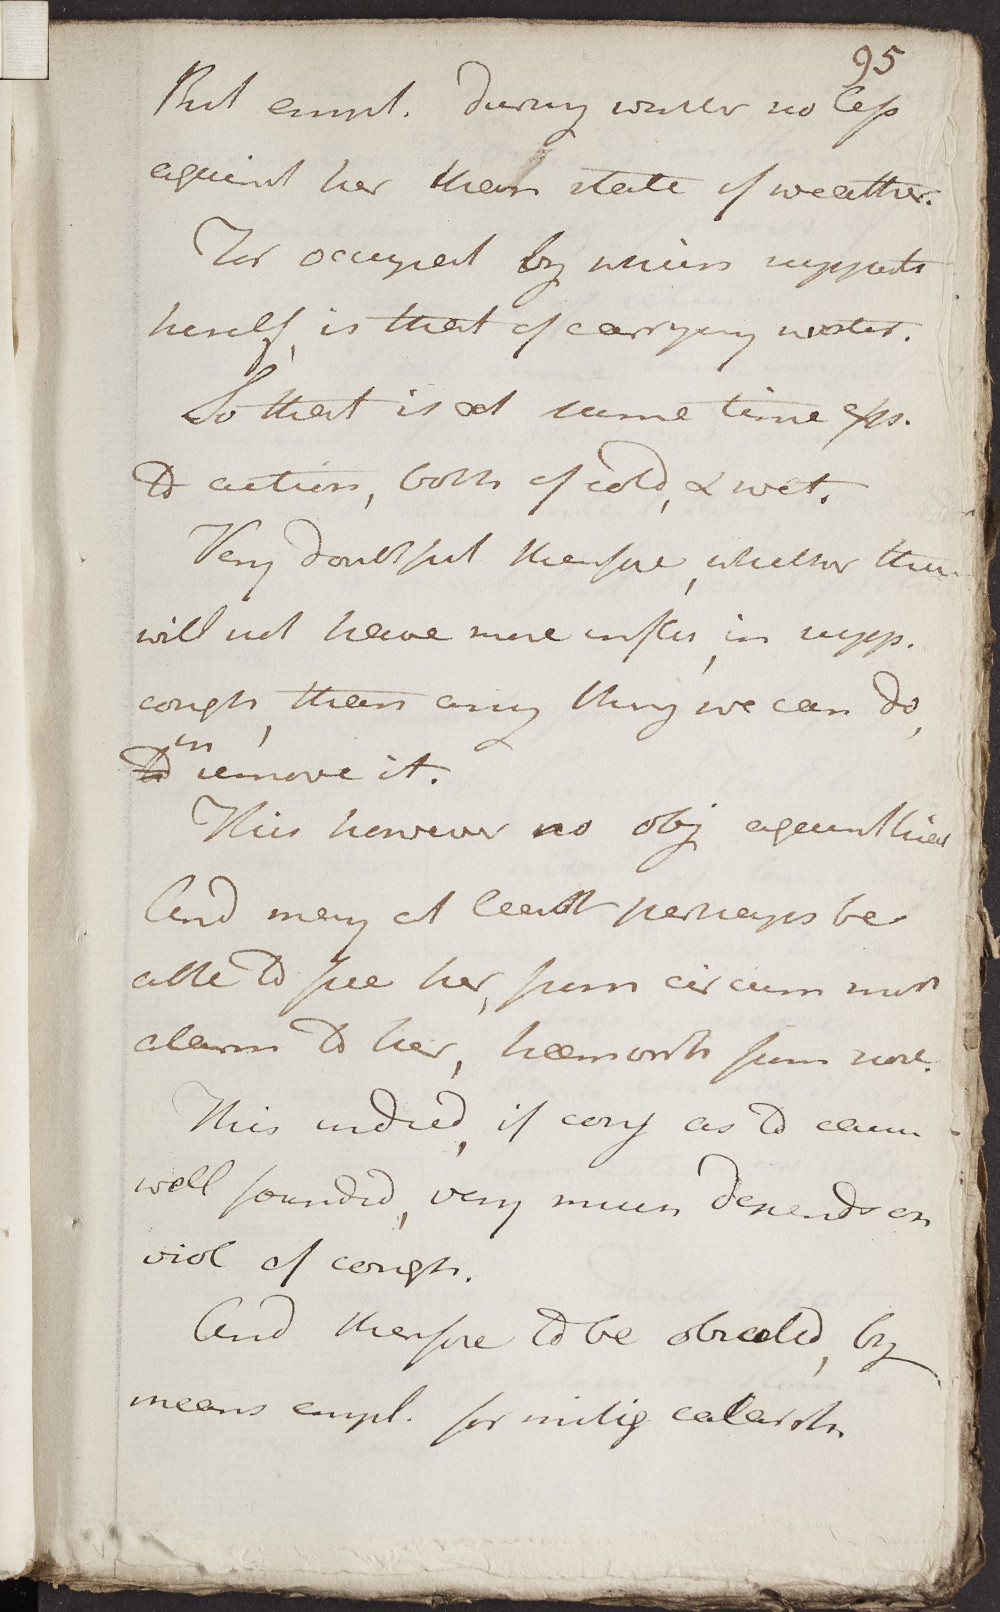 95
But empl. during winter no less
against her than state of weather.
For occupat by which supports
herself, is that of carrying water.
So that is at same time exps.
to action, both of cold, & wet.
Very doubtful therefore, whether this
will not have more influ, in supp.
cough, than any thing we can do,
in
to remove it.
This however no obj against trial
And may at least perhaps be
able to free her, from circum most
alarm to her, hemorrh from nose.
This indeed, if conj as to caus
well founded, very much depends on
viol of cough.
And therefore to be obviated, by
means empl. for mitig catarrh